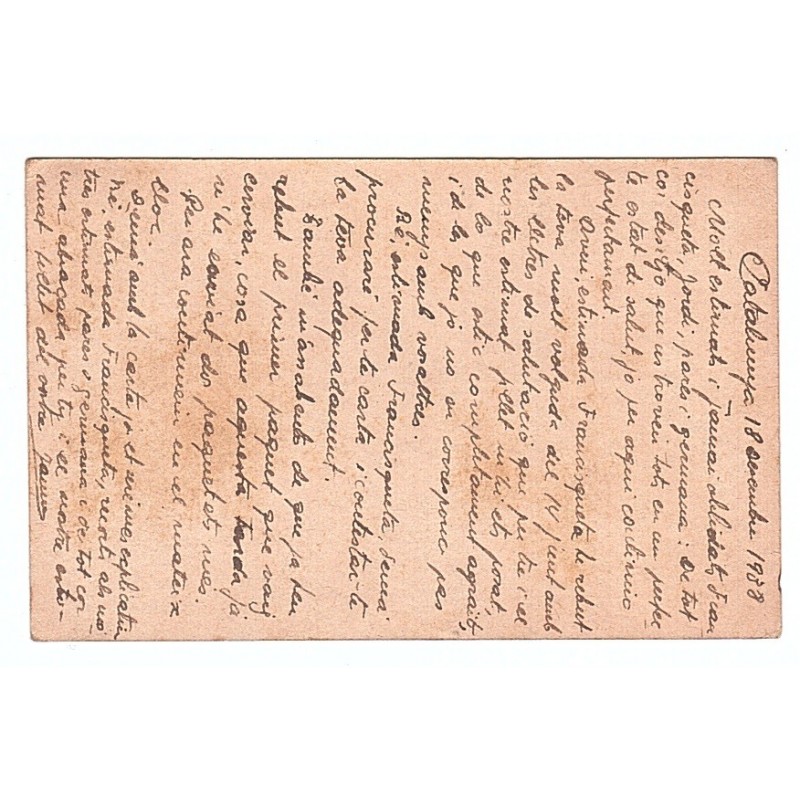 Catalunya 18 desembre 1938
Molt estimats i jamai oblidats, Fran
cisqueta, Jordi, pares i germana: De tot
cor desitjo que us troveu tots en un perfec
te estat de salut, jo per aqui continuo
perfectament.
Avui estimada Francisqueta he rebut
la teva molt volguda del 14 junt amb
les lletres de salutació que per tu i el
nostre estimat fillet m'hi ets posat,
de lo que estic completament agrait,
i de les que jo no en correspone pas
menys amb vosaltres.
Bé, estimada Francisqueta, demà
procuraré fer-te carta i contestar-te
la teva adequadament.
També m'assabento de que ja heu
rebut el primer paquet que vaig
enviar, cosa que aquesta tarda ja
n'he enviat dos paquetets mes.
Per ara continuem en el mateix
lloc.
Demà amb la carta ja et seré mes explicatiu
Bé, estimada Francisqueta, records als nos
tres estimats pares i germana i de tot cor
una abraçada per tu i el nostre esti-
mat fillet del vostre Jaume